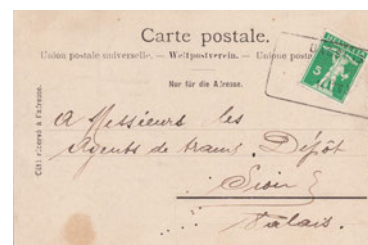 Carte postale.
Union postale universelle. — Weltpostverein. — Unione posta
Nur für die Adresse.
Côté réservé à l'adresse.
HELVETIA
5
A Messieurs les
Agents de trains. Dépôt
Sion
Valais.